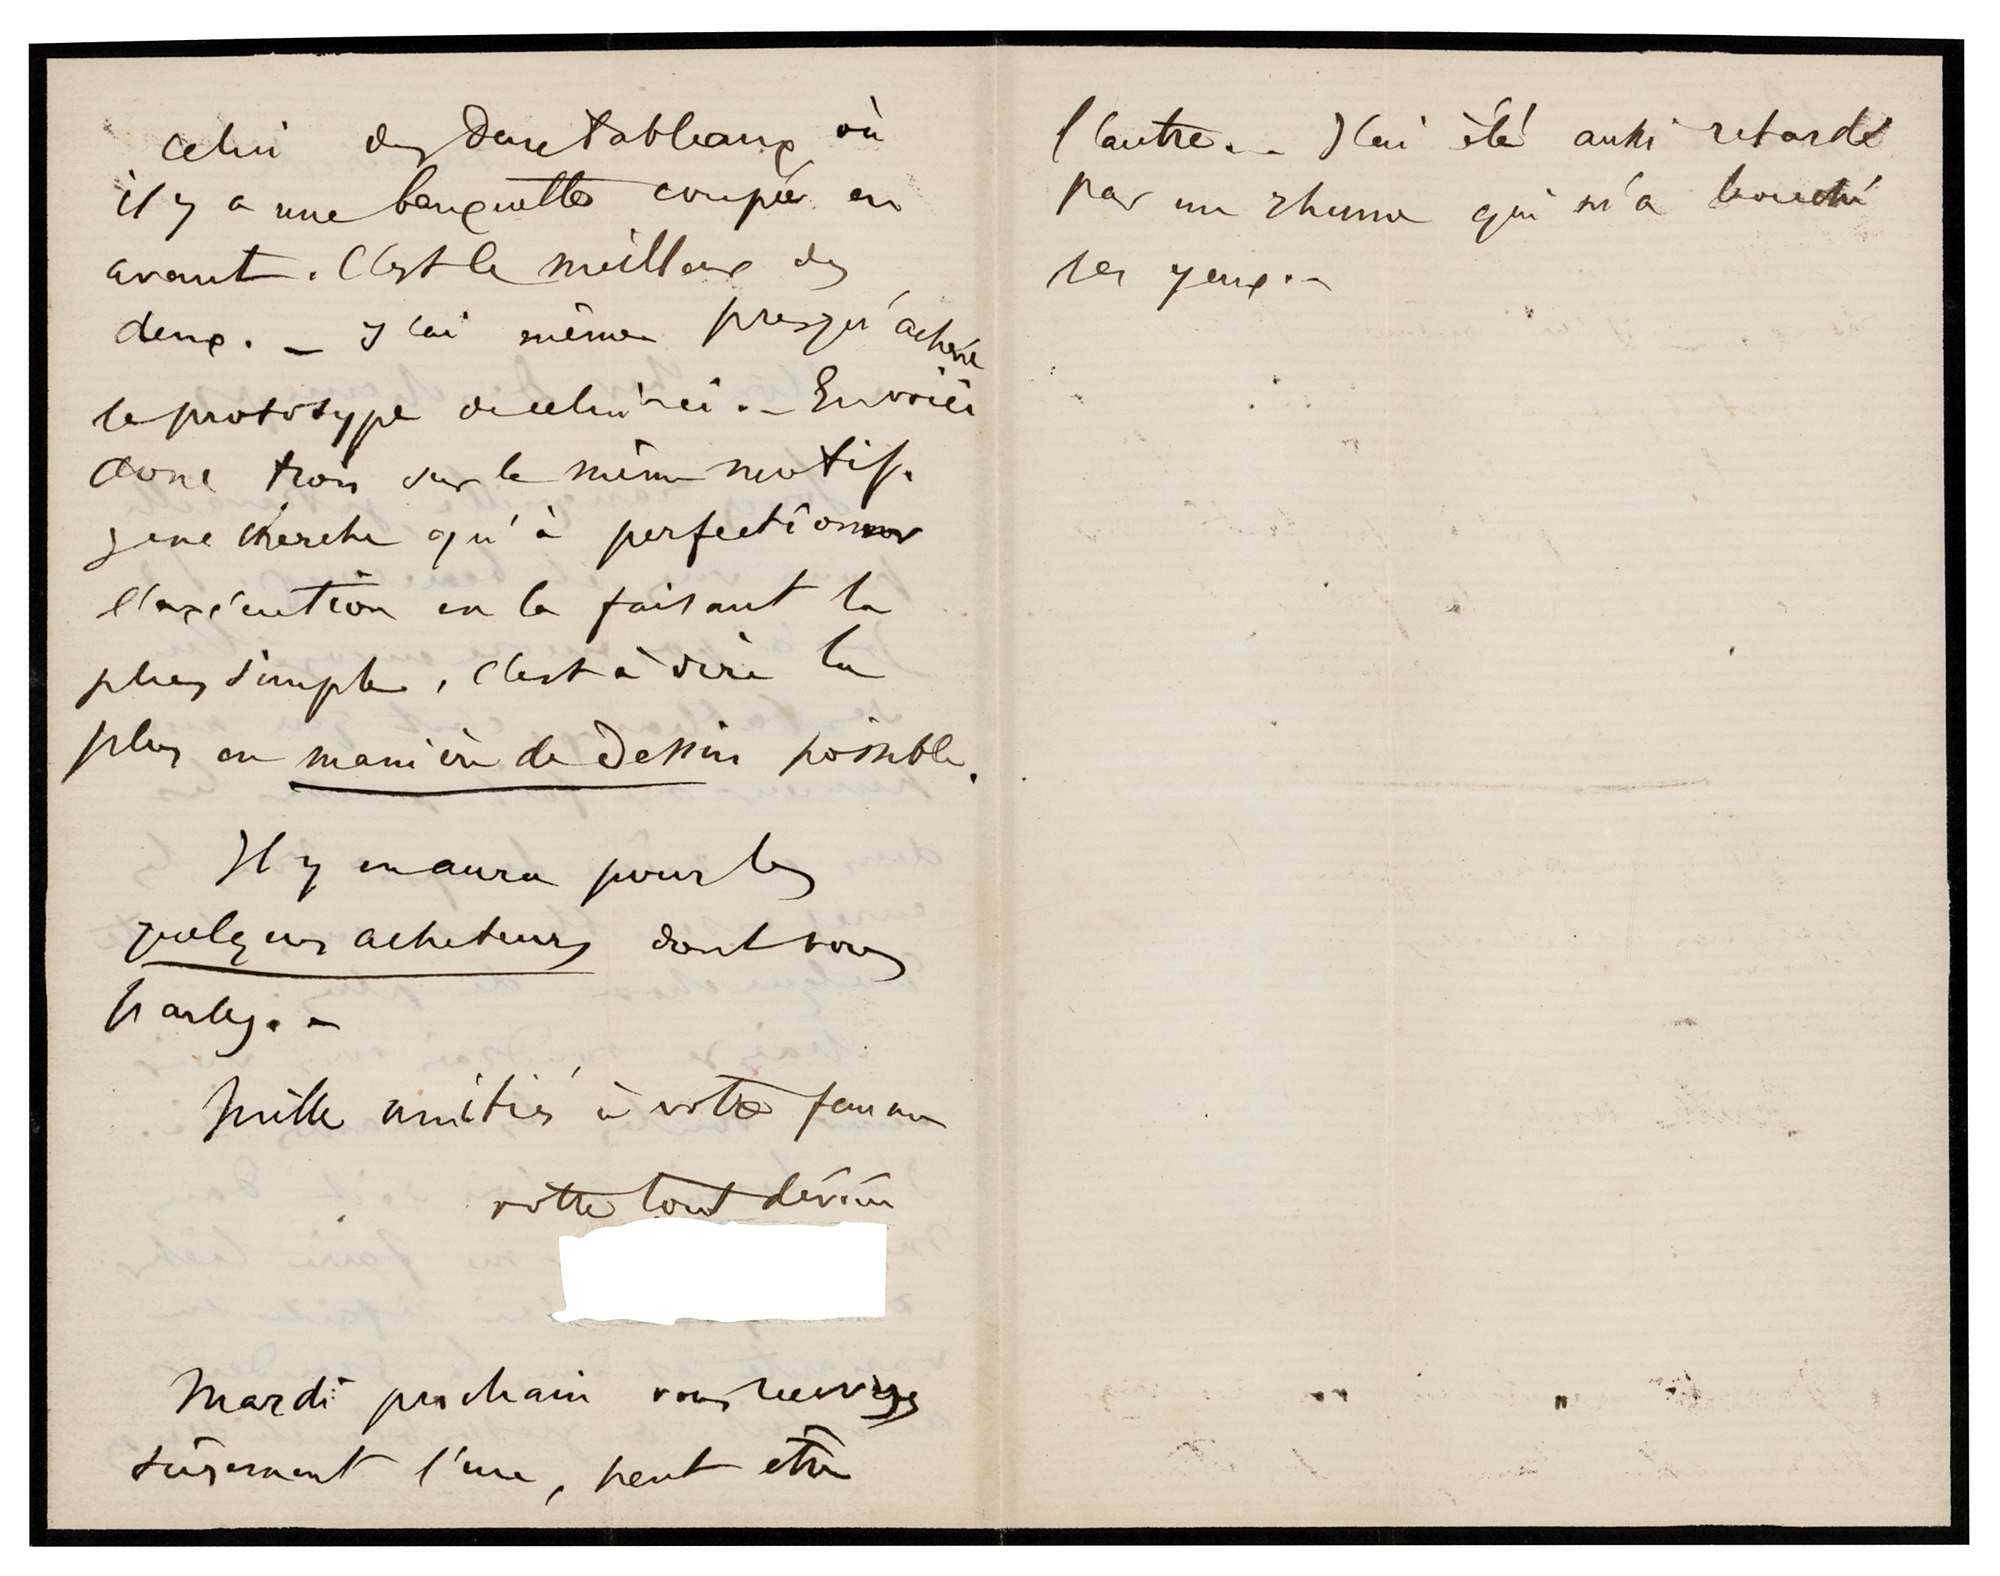 celui des deux tableaux où
il y a une banquette coupée en
avant. C'est le meilleur des
deux. — J'ai même presqu'achevé
le prototype de celui ci. — En voici
donc trois sur le même motif.
je ne cherche qu'à perfectionner
l'exécution en la faisant la
plus simple, c'est à dire la
plus en manière de dessin possible.
Il y en aura pour les
quelques acheteurs dont vous
parlez. —
Mille amitiés à votre femme
votre tout dévoué
Mardi prochain vous recevrez
sûrement l'une, peut être
l'autre. — J'ai été aussi retardé
par un rhume qui m'a bouché
les yeux. —